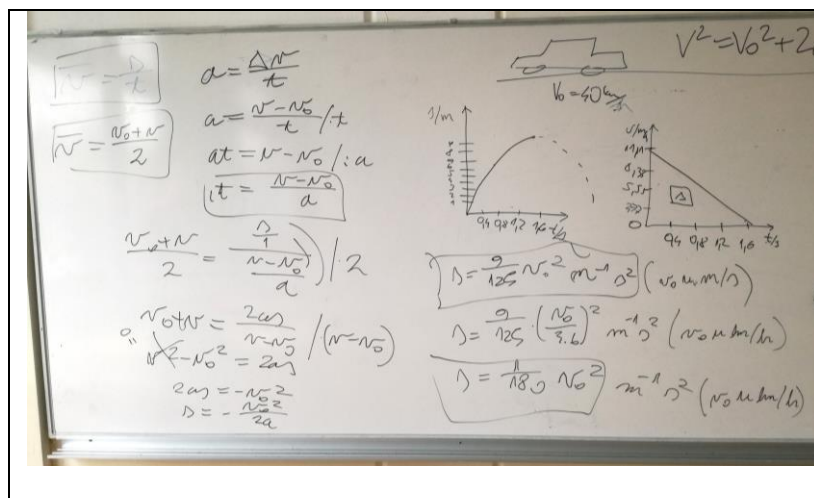 v̄ = s/t
v̄ = (v₀+v)/2
a = Δv/t
a = (v-v₀)/t /·t
at = v-v₀ /:a
t = (v-v₀)/a
(v₀+v)/2 = (s/1)/((v-v₀)/a) /·2
v₀+v = 2as/(v-v₀) /·(v-v₀)
v²-v₀² = 2as
2as = -v₀²
s = -v₀²/2a
V₀=40 km/h
V²=V₀²+2
s/m
0,4 0,8 1,2 1,6 t/s
v/m/s
11,1
5,55
0
s
0,4 0,8 1,2 1,6 t/s
s = 9/125 v₀² m⁻¹ s² (v₀ u m/s)
s = 9/125 · (v₀/3.6)² m⁻¹ s² (v₀ u km/h)
s = 1/180 v₀² m⁻¹ s² (v₀ u km/h)